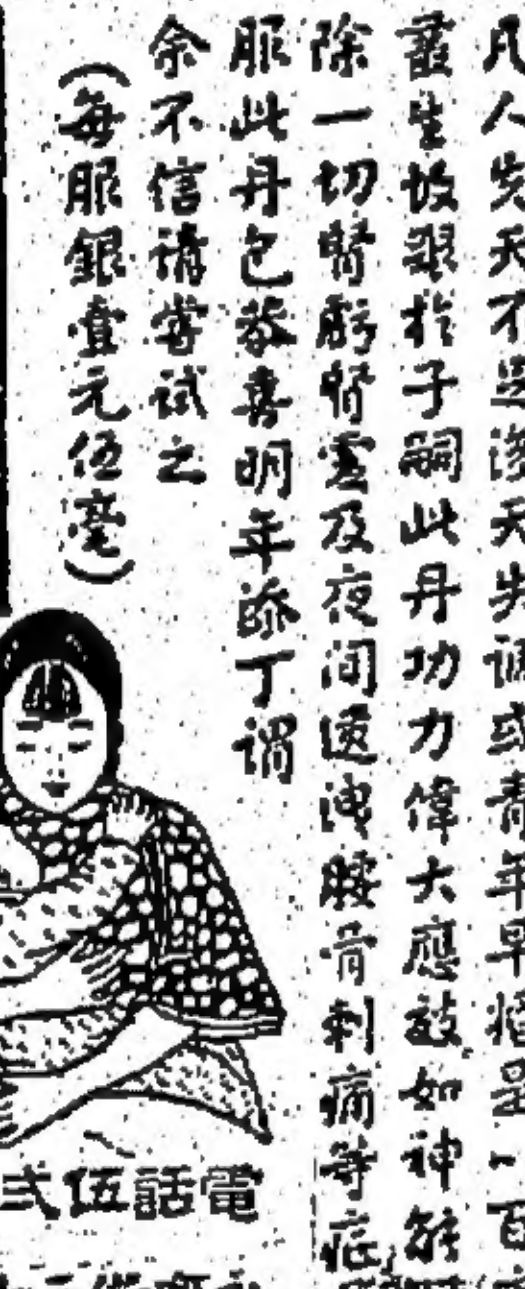 凡人先天不足後天失調或青年早婚是一百
叢生故艱於子嗣此丹功力偉大應效如神能
除一切腎虧腎虛及夜間遺洩腰骨刺痛等症
服此丹包恭喜明年添丁謂
余不信請嘗試之
(每服銀壹元伍毫)
電話伍弍